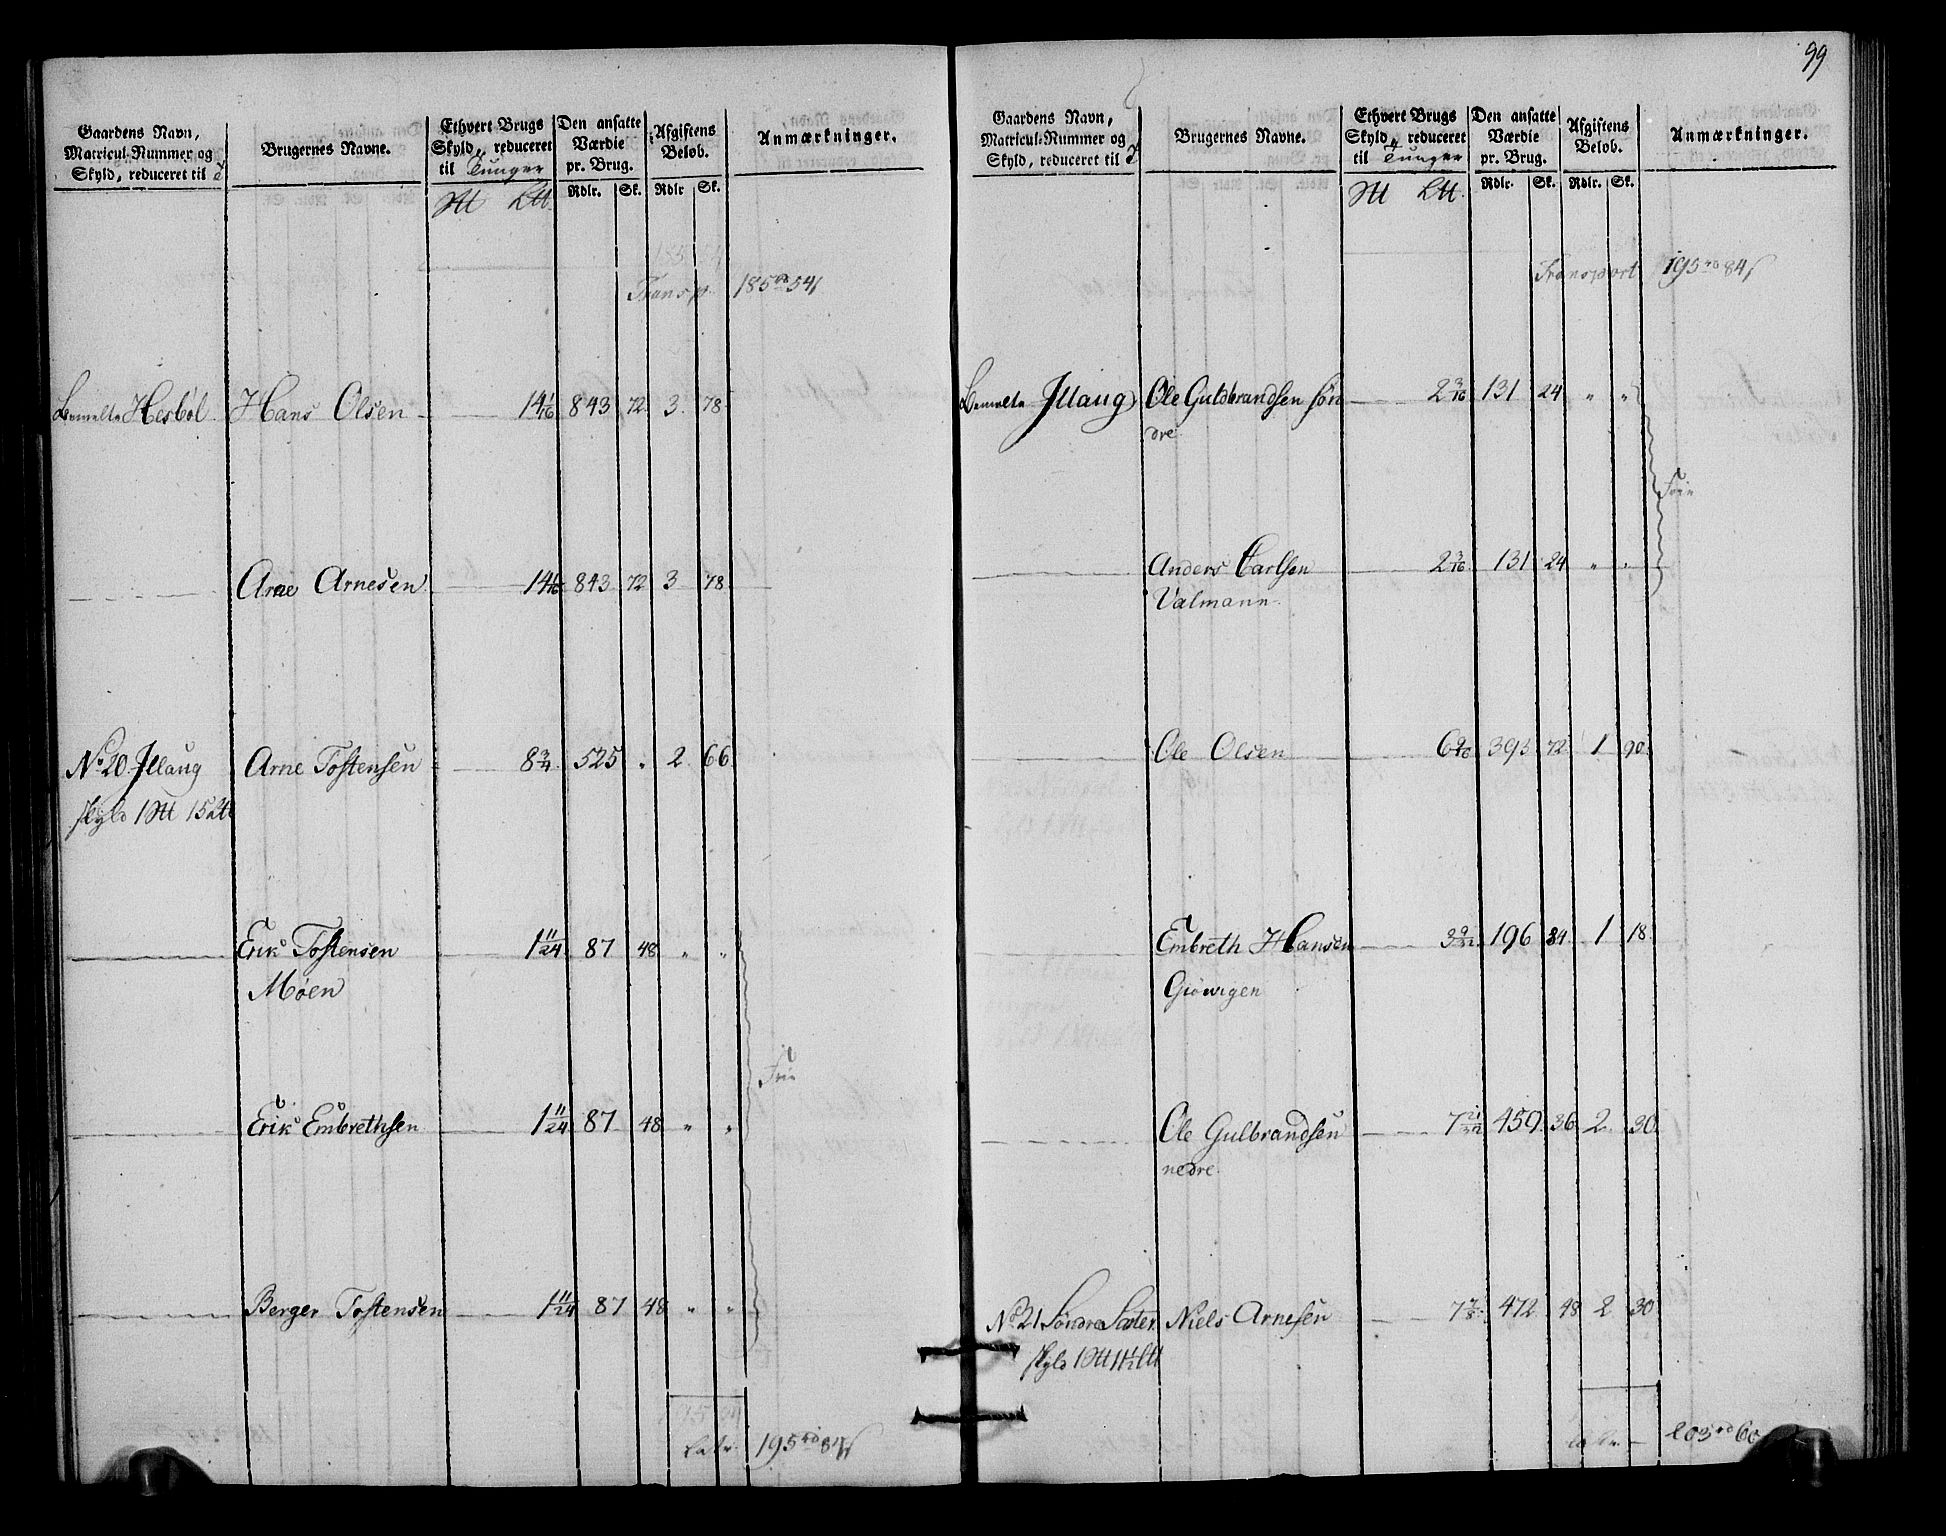 99
Gaardens Navn, Matricul-Nummer og Skyld, reduceret til
Brugernes Navne.
Ethvert Brugs Skyld, reduceret til Tunger
Den ansatte Værdie pr. Brug.
Afgiftens Beløb.
Anmærkninger.
Rdlr. Sk. Rdlr Sk.
Transp. 185 rd 54 s
Bemelte Hesbøl Hans Olsen 14 1/16 843 72 3 78
Arne Arnesen 14 1/16 843 72 3 78
No 20 Illaug Arne Tostensen 8 3/4 525 " 2 66
skyld 1 15
Erik Tostensen 1 11/24 87 48 " "
Moen
Frie
Erik Embrethsen 1 11/24 87 48 " "
Berger Tostensen 1 11/24 87 48 " "
Latr. 195 rd 84 s
Gaardens Navn, Matricul-Nummer og Skyld, reduceret til
Brugernes Navne.
Ethvert Brugs Skyld, reduceret til Tunger
Den ansatte Værdie pr. Brug.
Afgiftens Beløb.
Anmærkninger.
Rdlr. Sk. Rdlr. Sk.
Transport 195 rd 84 s
Bemelte Illaug Ole Guldbrandsen søn 2 3/16 131 24 " "
dre
Frie
Anders Carlsen 2 3/16 131 24 " "
Valmann
Ole Olsen 6 9/16 393 72 1 90
Embreth Hansen 3 9/32 196 84 1 18
Giøvigen
Ole Gulbrandsen 7 21/32 459 36 2 30
nedre
No 21 Søndre Sæter Niels Arnesen 7 7/8 472 48 2 30
skyld 1 11 1/2
Latr. 203 rd 60